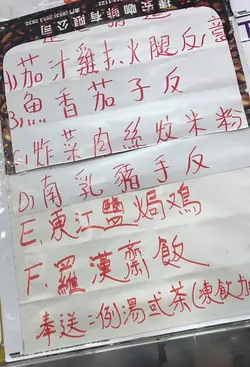 捷安咖啡有限公司
A)茄汁雞扒火腿反意
B)魚香茄子反
C)炸菜肉絲炆米粉
D)南乳豬手反
E.東江鹽焗鴻
F.羅漢齋飯
奉送:例湯或茶(凍飲加